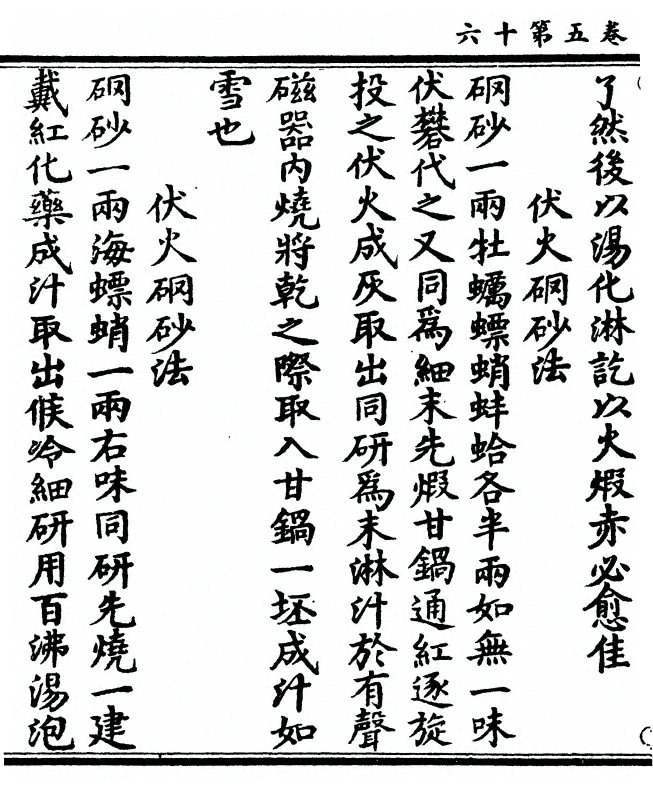 卷五第十六
了然後以湯化淋訖以火煆赤必愈佳
伏火硇砂法
硇砂一兩牡蠣螵蛸蚌蛤各半兩如無一味
伏礬代之又同爲細末先煆甘鍋通紅逐旋
投之伏火成灰取出同研爲末淋汁於有聲
磁器内燒將乾之際取入甘鍋一坯成汁如
雪也
伏火硇砂法
硇砂一兩海螵蛸一兩右味同研先燒一建
戴紅化藥成汁取出候冷細研用百沸湯泡